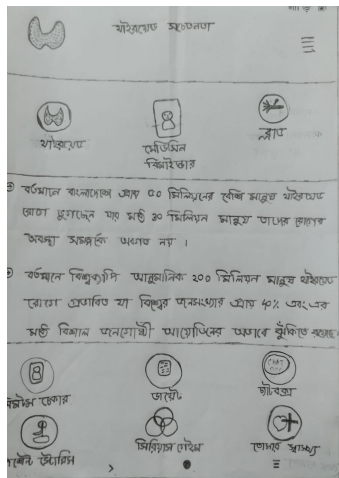 থাইরয়েড সচেতনতা
থাইরয়েড
মেডিসিন
রিমাইন্ডার
ব্লাড
বর্তমানে বাংলাদেশে প্রায় ৫০ মিলিয়নের বেশি মানুষ থাইরয়েড
রোগে ভুগছেন যার মধ্যে ৩০ মিলিয়ন মানুষ তাদের রোগের
অবস্থা সম্পর্কে অবগত নয় ।
বর্তমানে বিশ্বব্যাপি আনুমানিক ২০০ মিলিয়ন মানুষ থাইরয়েড
রোগে প্রভাবিত যা বিশ্বের জনসংখ্যার প্রায় ৪০% এবং এর
মধ্যে বিশাল জনগোষ্ঠী আয়োডিনের অভাবে ঝুঁকিতে রয়েছে
চেকার
ডায়েট
CHAT
চ্যাটবক্স
সিরিয়াস গেইম
তোমার স্বাস্থ্য